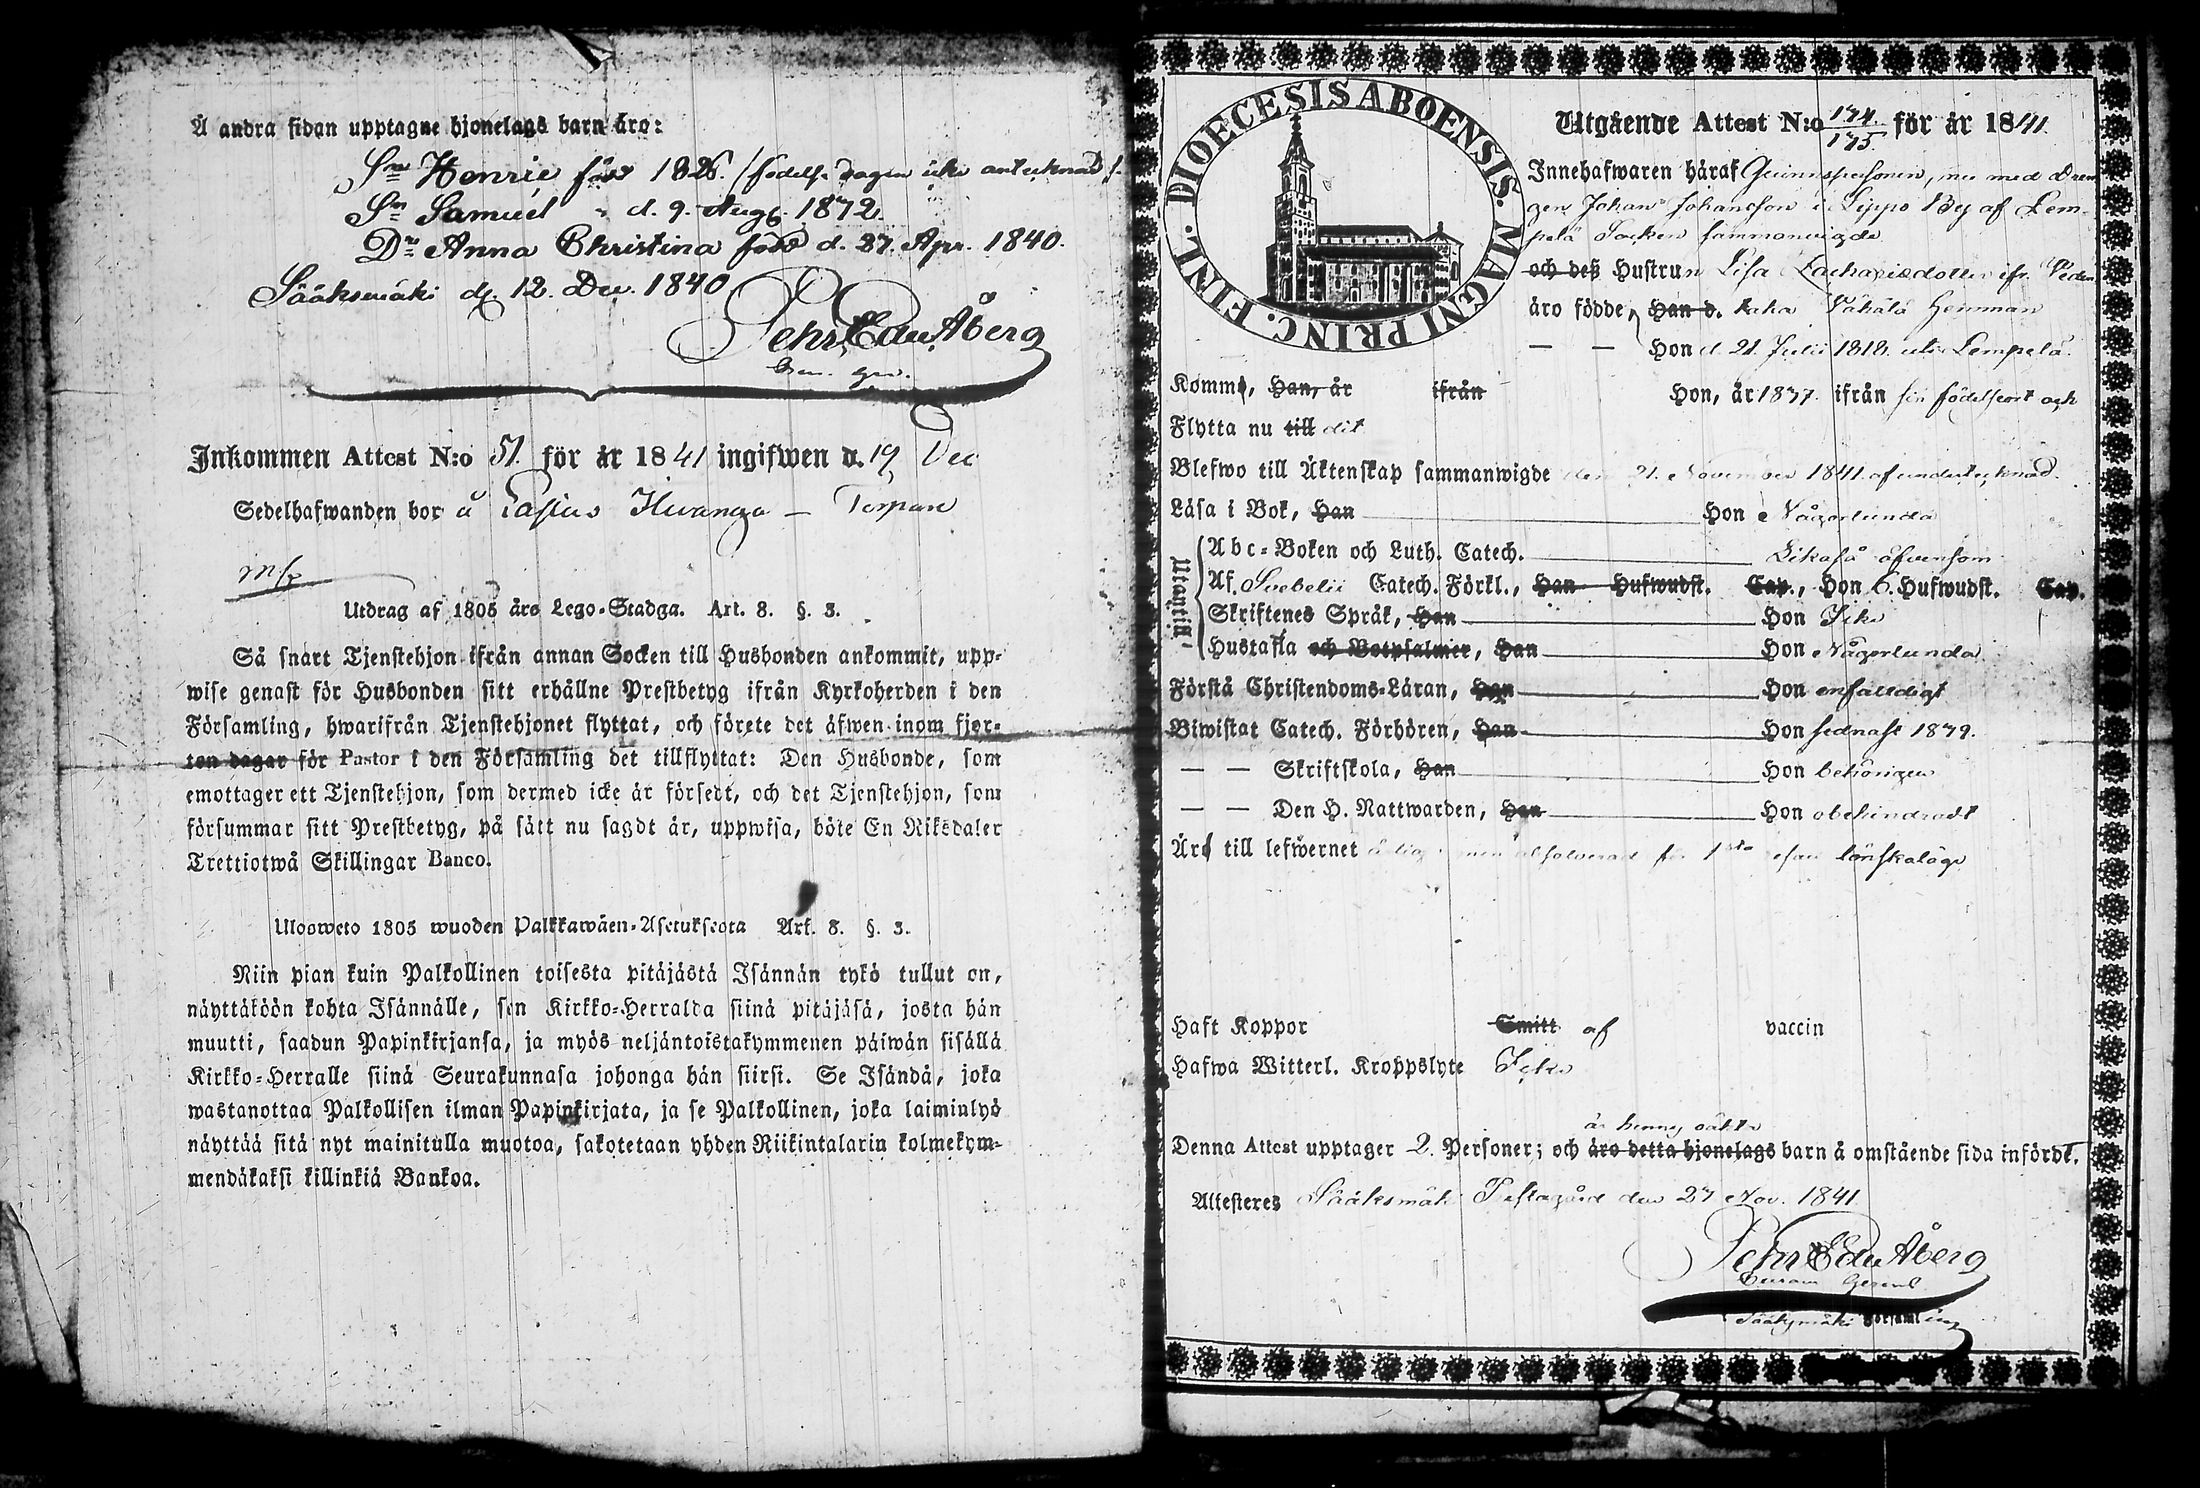 Å andra sidan upptagne hjonelags barn äro:
Sn Henric född 1826. /födelse dagen icke antecknad/.
Sn Samuel " d. 9. Aug. 1832.
Dr Anna Christina född d. 27. Apr. 1840.
Sääksmäki d. 12. Dec. 1840
Pehr Edv. Åberg
Inkommen Attest N:o 51 för år 1841 ingifwen d. 19 Dec
Sedelhafwanden bor å Hwango — Torpare
Utdrag af 1805 års Lego-Stadga. Art. 8. §. 3.
Så snart Tjenstehjon ifrån annan Socken till Husbonden ankommit, upp-
wise genast för Husbonden sitt erhållne Prestbetyg ifrån Kyrkoherden i den
Församling, hwarifrån Tjenstehjonet flyttat, och förete det äfwen inom fjor-
ton dagar för Pastor i den Församling det tillflyttat: Den Husbonde, som
emottager ett Tjenstehjon, som dermed icke är försedt, och det Tjenstehjon, som
försummar sitt Prestbetyg, på sätt nu sagdt är, uppwisa, böte En Riksdaler
Trettiotwå Skillingar Banco.
Ulosweto 1805 wuoden Palkkawäen-Asetuksesta Art. 8. §. 3.
Niin pian kuin Palkollinen toisesta pitäjästä Isännän tykö tullut on,
näyttäköön kohta Isännälle, sen Kirkko-Herralda siinä pitäjäsä, josta hän
muutti, saadun Papinkirjansa, ja myös neljäntoistakymmenen päiwän sisällä
Kirkko-Herralle siinä Seurakunnasa johonga hän siirsi. Se Isändä, joka
wastanottaa Palkollisen ilman Papinkirjata, ja se Palkollinen, joka laiminlyö
näyttää sitä nyt mainitulla muotoa, sakotetaan yhden Riikintalarin kolmekym-
mendäkaksi killinkiä Bankoa.
DIOECESIS ABOENSIS. MAGNI PRINC. FINL.
Utgående Attest N:o 174. 175. för år 1841.
Innehafwaren häraf Qwinnspersonen, nu med Dren-
gen Johan Johansson i Sippo By af Lem-
pelä Socken sammanvigde
och deß Hustrun Lisa Zachariedotter ifr.
äro födde, Han d. Wähälä Hemman
— — Hon d. 21. Julii 1818. uti Lempelä.
Komme, Han, år ifrån Hon, år 1837. ifrån sin födelseort och
Flytta nu till dit
Blefwo till Äktenskap sammanwigde den 21. November 1841. af undertecknad.
Läsa i Bok, Han Hon Någorlunda
Utantill
Abc-Boken och Luth. Catech. Likaså äfvensom
Af Svebelii Catech. Förkl., Han Hufwudst. Cap., Hon 6. Hufwudst. Cap.
Skriftenes Språk, Han Hon Icke
Hustafla och Botpsalmer, Han Hon Någorlunda
Förstå Christendoms-Läran, Han Hon enfaldigt
Biwistat Catech. Förhören, Han Hon sednast 1839.
— — Skriftskola, Han Hon behörigen
— — Den H. Nattwarden, Han Hon obehindradt
Äro till lefwernet men absolverad för 1sta lönskaläge
Haft Koppor Smitt af vaccin
Hafwa Witterl. Kroppslyte Icke
är hennes oäkta
Denna Attest upptager 2. Personer; och äro detta hjonelags barn å omstående sida infördt.
Attesteres Sääksmäki Prestagård den 27 Nov. 1841
Pehr Edv. Åberg
Sääksmäki Församling